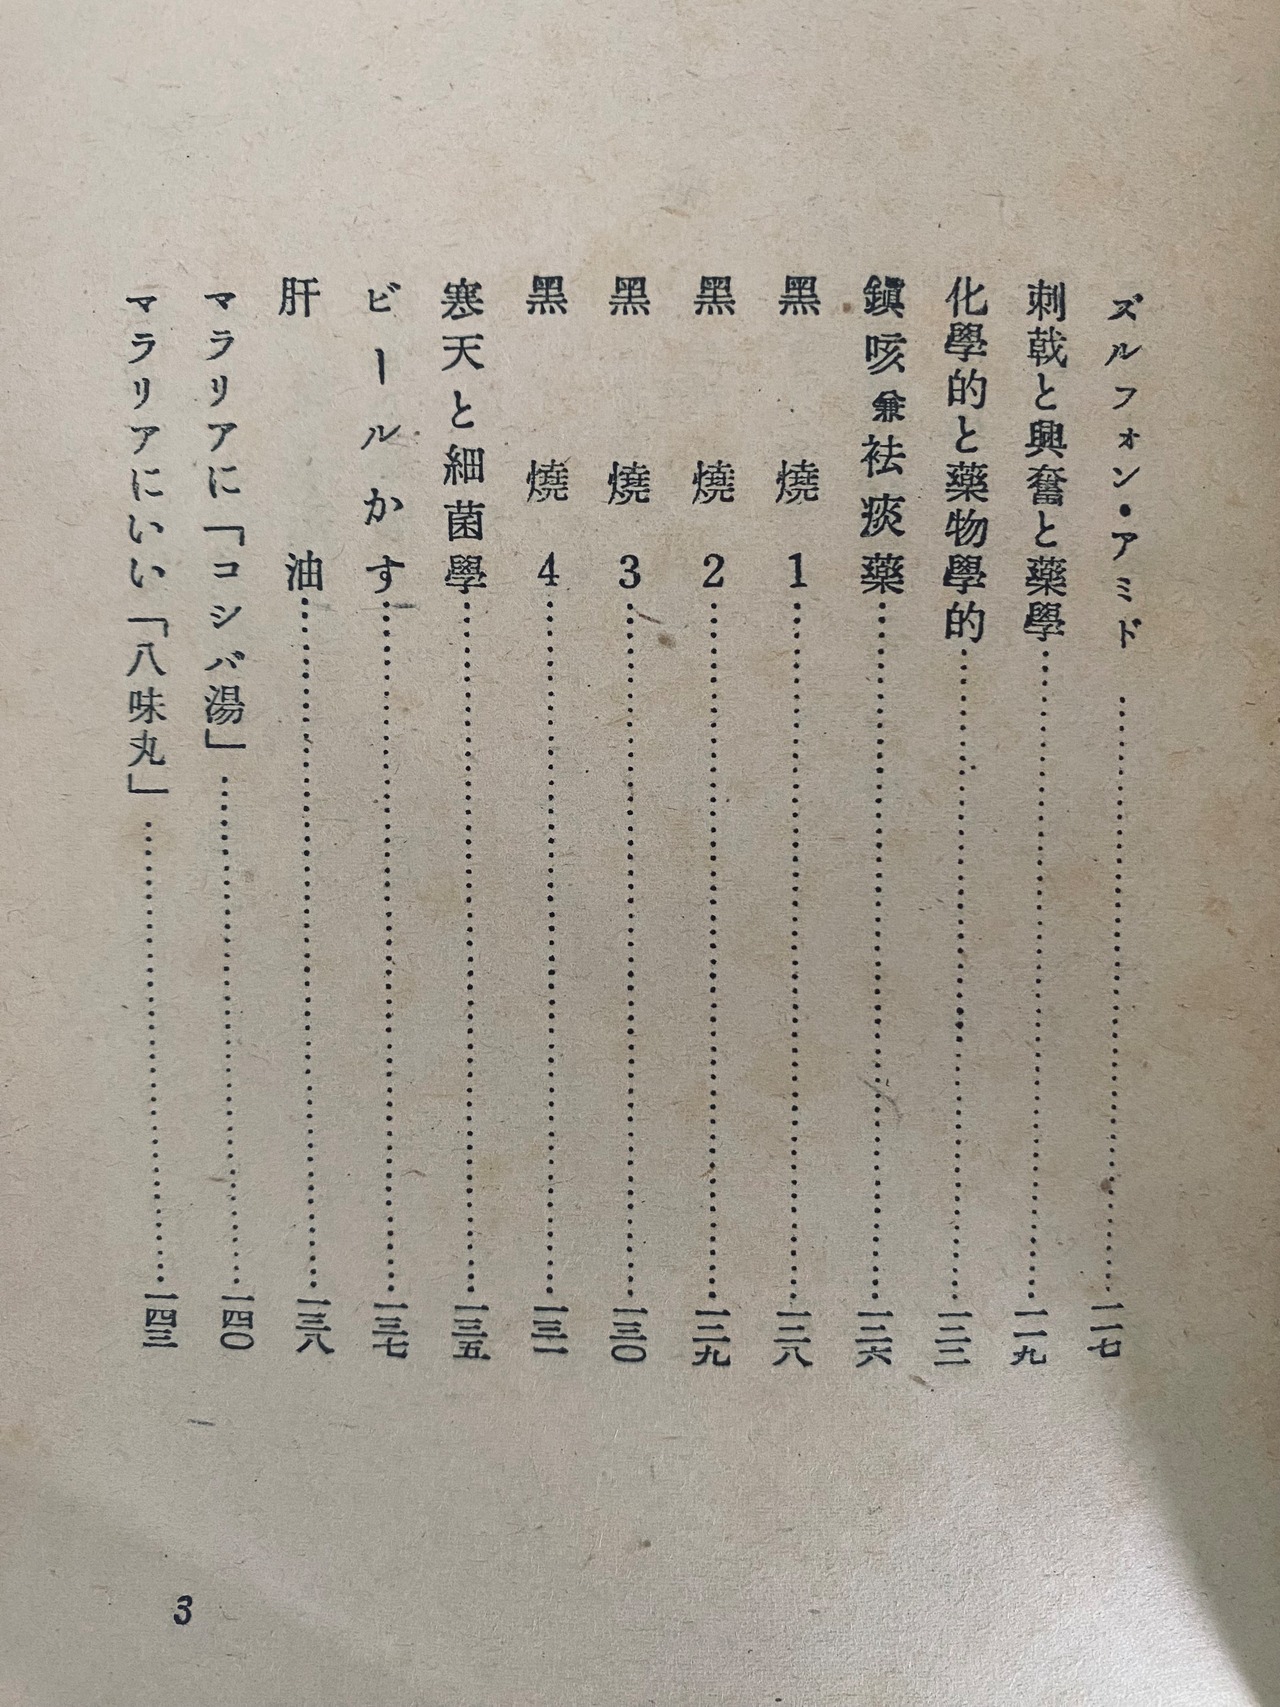 ズルフォン・アミド……一一七
刺戟と興奮と藥學……一一九
化學的と藥物學的……一二二
鎭咳兼袪痰藥……一二六
黑燒1……一二八
黑燒2……一二九
黑燒3……一三〇
黑燒4……一三一
寒天と細菌學……一三五
ビールかす……一三七
肝油……一三八
マラリアに「コシバ湯」……一四〇
マラリアにいい「八味丸」……一四三
3